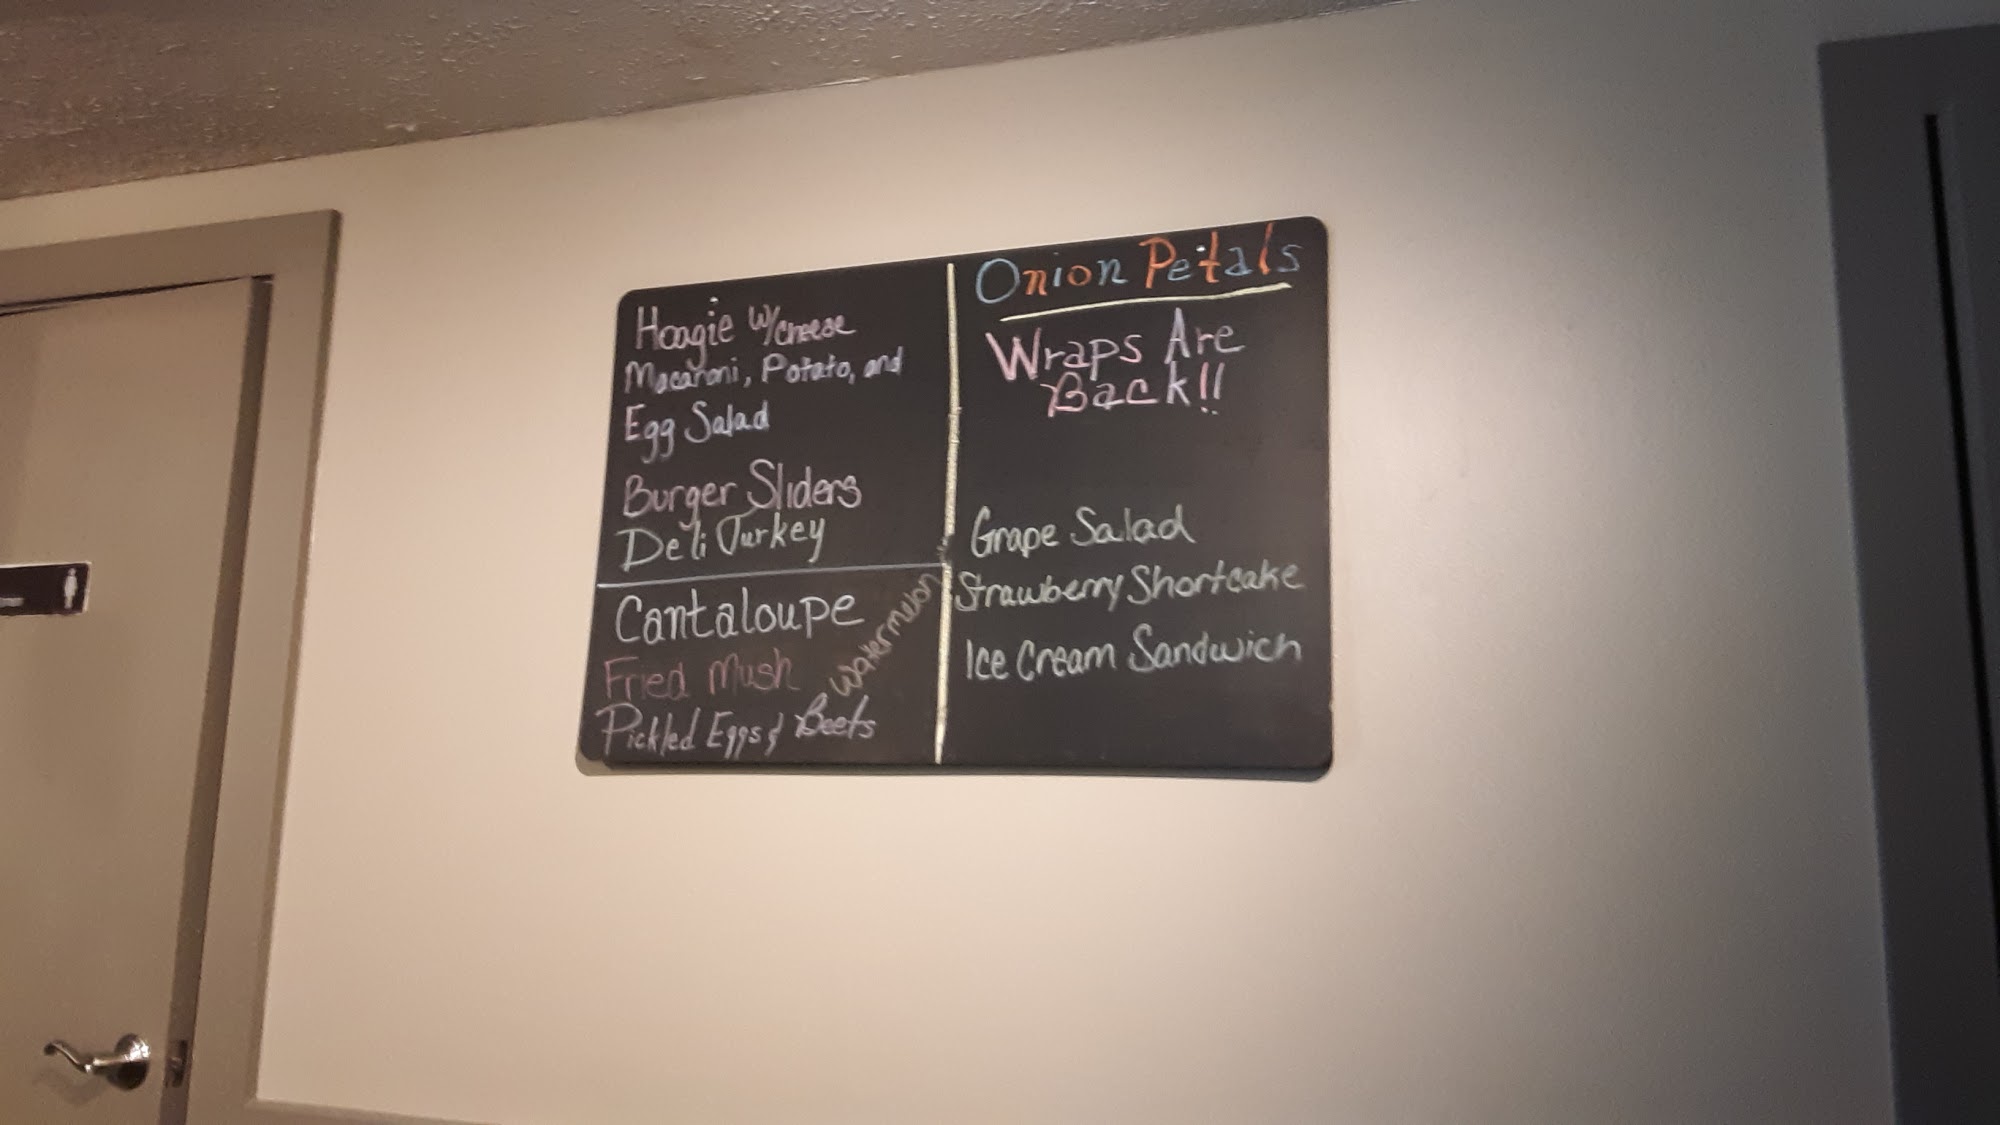 Hoagie w/cheese
Macaroni, Potato, and
Egg Salad
Burger Sliders
Deli Turkey
Cantaloupe
Watermelon
Fried Mush
Pickled Eggs & Beets
Onion Petals
Wraps Are
Back!!
Grape Salad
Strawberry Shortcake
Ice Cream Sandwich